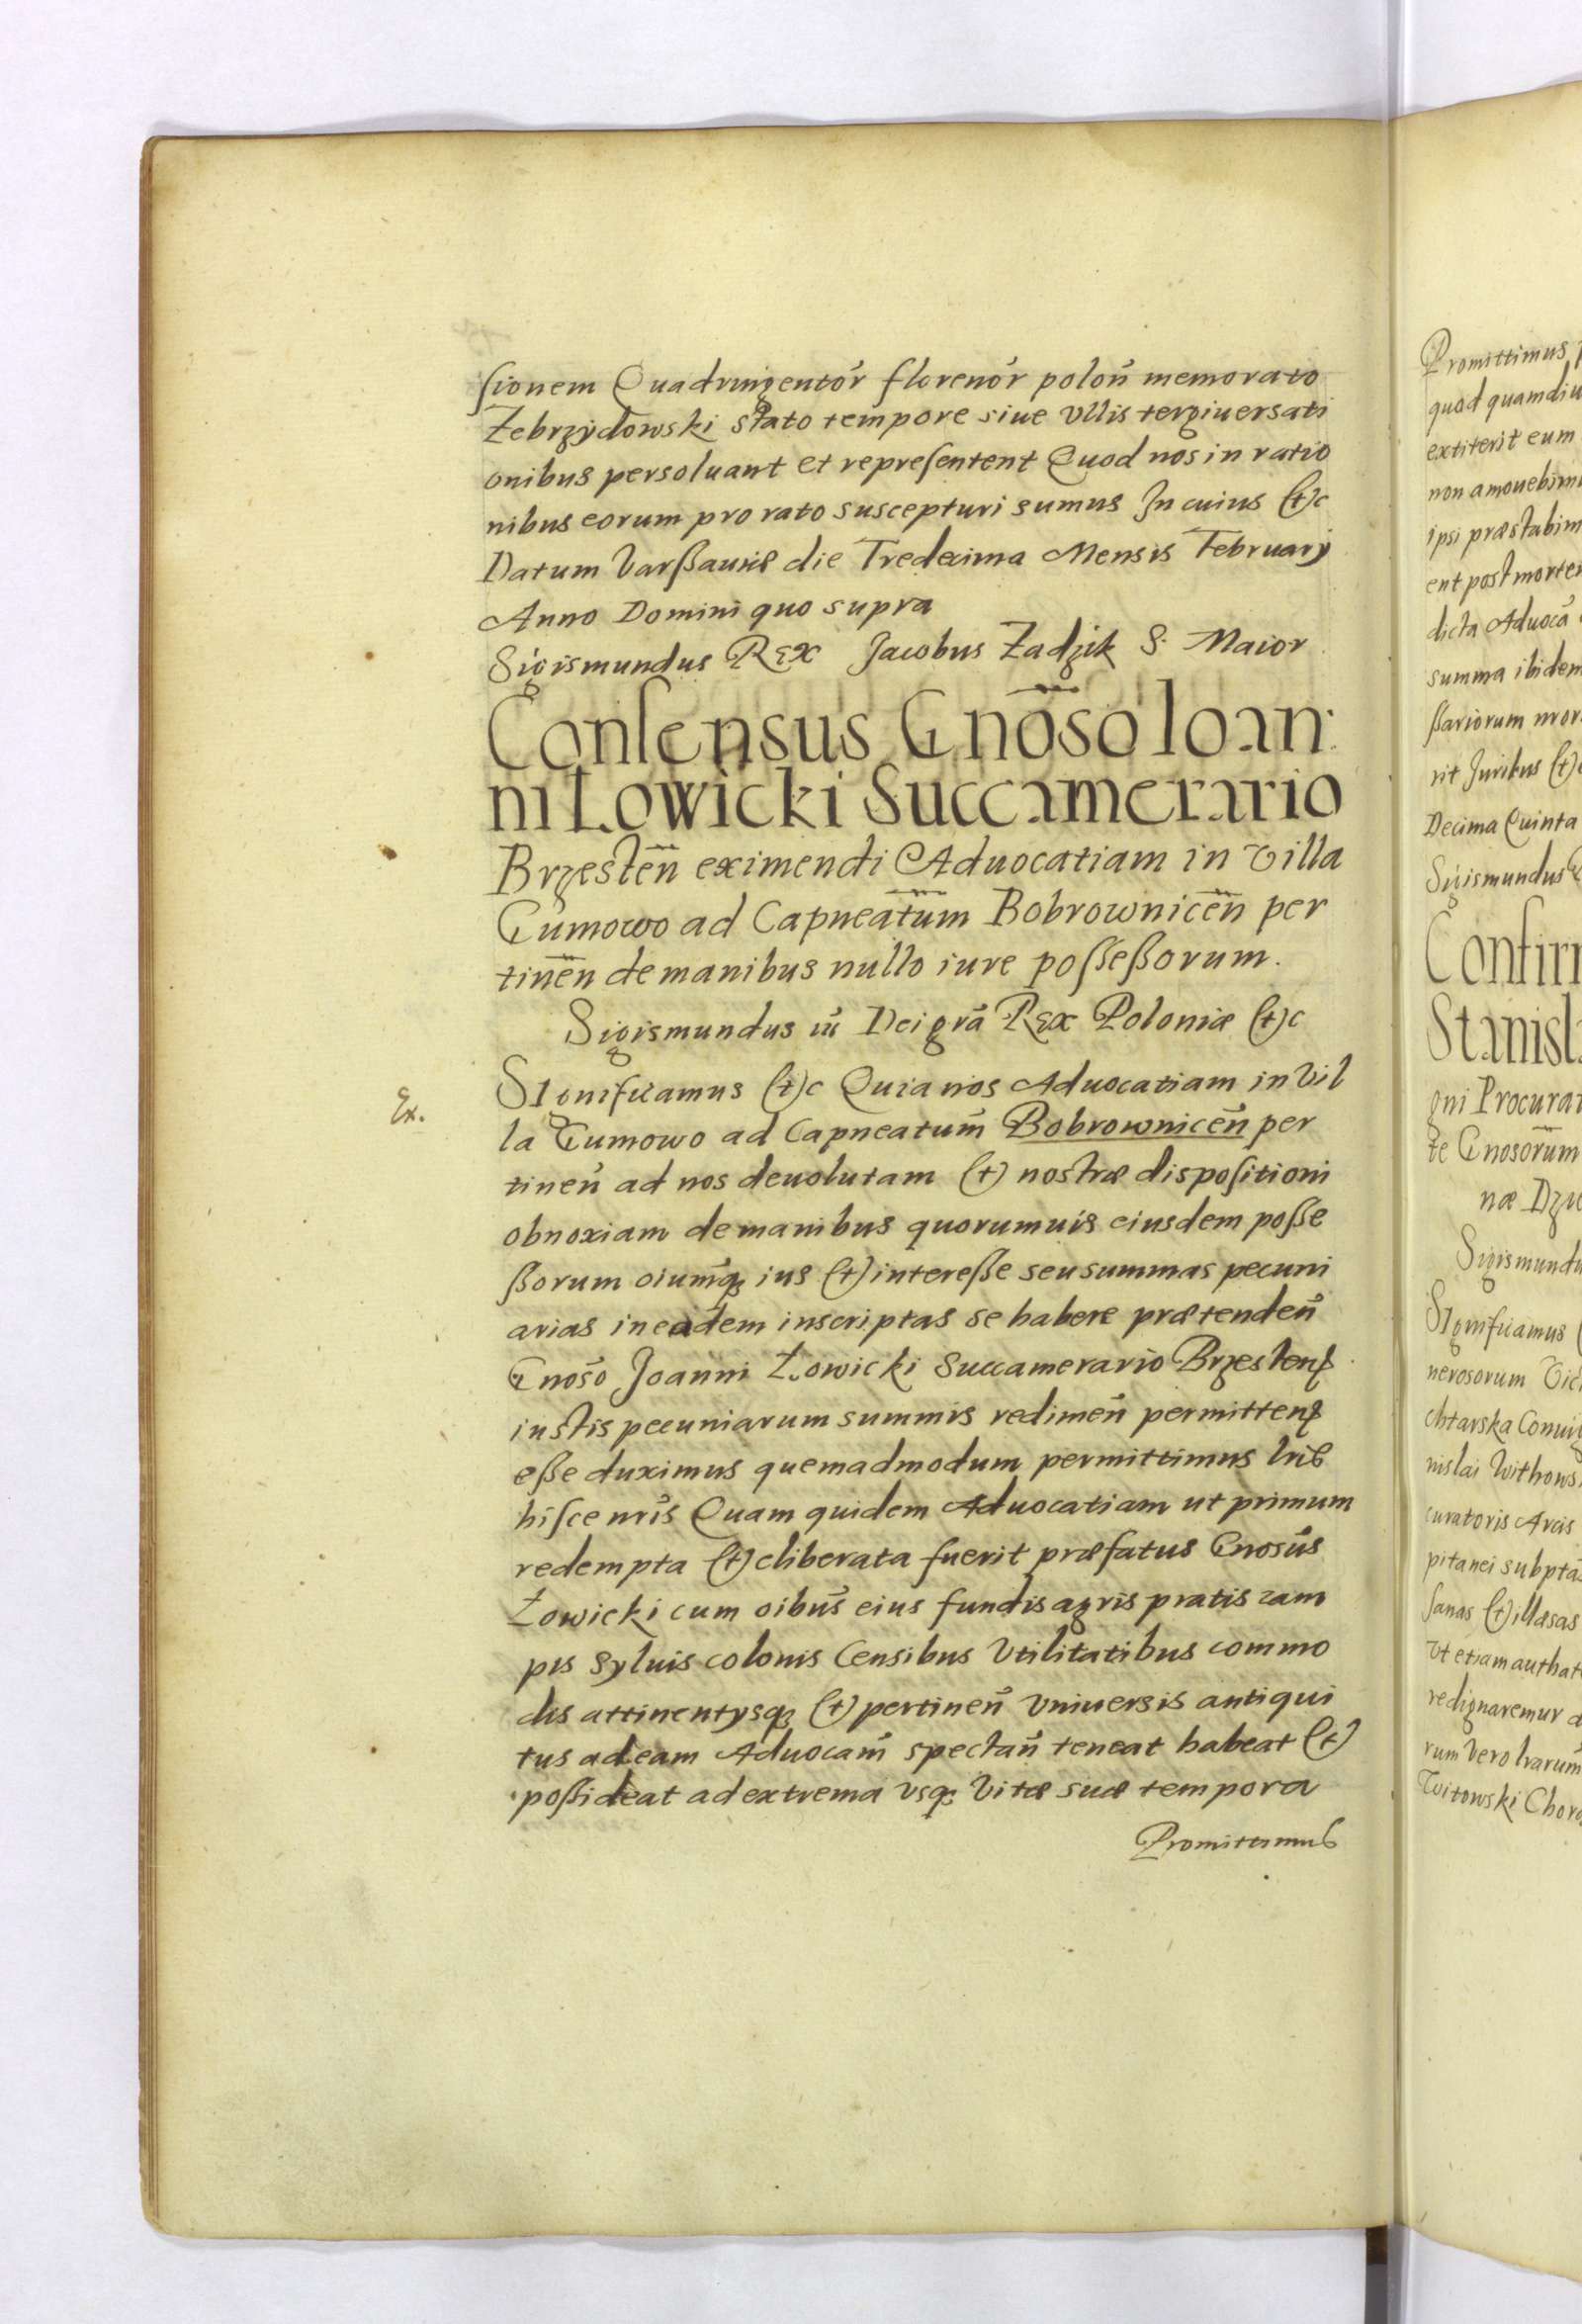 sionem Quadringentor̃ florenor̃ polon̄ memorato
Zebrzydowski stato tempore siue vllis tergiuersati
onibus persoluant et repræsentent Quod nos in ratio
nibus eorum pro rato suscepturi sumus In cuius (t)c
Datum Varßauiæ die Tredecima Mensis February
Anno Domini quo supra
Sigismundus Rex Jacobus Zadzik S. Maior
Consensus Gnōso Ioan:
ni Łowicki Succamerario
Brzesten̄ eximendi Aduocatiam in Villa
Gumowo ad Capneatum̄ Bobrownicen̄ per
tinen̄ de manibus nullo iure poßeßorum.
Sigismundus iii Dei grā Rex Poloniæ (t)c
Ex.
Significamus (t)c Quia nos Aduocatiam in Vil
la Gumowo ad Capneatum̄ Bobrownicen̄ per
tinen̄ ad nos deuolutam (t) nostræ dispositioni
obnoxiam de manibus quorumuis eiusdem poße
ßorum oium̄q; ius (t) intereße seu summas pecuni
arias in eadem inscriptas se habere prætenden̄
Gnosō Joanni Łowicki Succamerario Brzesten̄
iustis pecuniarum summis redimen̄ permitten̄
eße duximus quemadmodum permittimus lrīs
hisce nrīs Quam quidem Aduocatiam ut primum
redempta (t) eliberata fuerit præfatus Gnosūs
Łowicki cum oibūs eius fundis agris pratis cam
pis syluis colonis Censibus Vtilitatibus commo
dis attinentysq; (t) pertinen̄ Vniuersis antiqui
tus ad eam Aduocam̄ spectan̄ teneat habeat (t)
poßideat ad extrema vsq; Vitæ suæ tempora
Promittimus
Promittimus
quod quamdiu
extiterit eum
non amouebim
ipsi præstabim
ent post morte
dicta Aduocā
summa ibidem
ßariorum nror
rit Juribus (t)c
Decima Quinta
Sigismundus
Confir
Stanisl
gni Procurat
te Gnosorum̄
næ
Sigismundu
Significamus
nerosorum
chtarska Coniug
nislai Withows
curatoris Arcis
pitanei
sanas (t) illæsas
Vt etiam authat
redignaremur
rum Vero lrarum̄
Witowski Chor